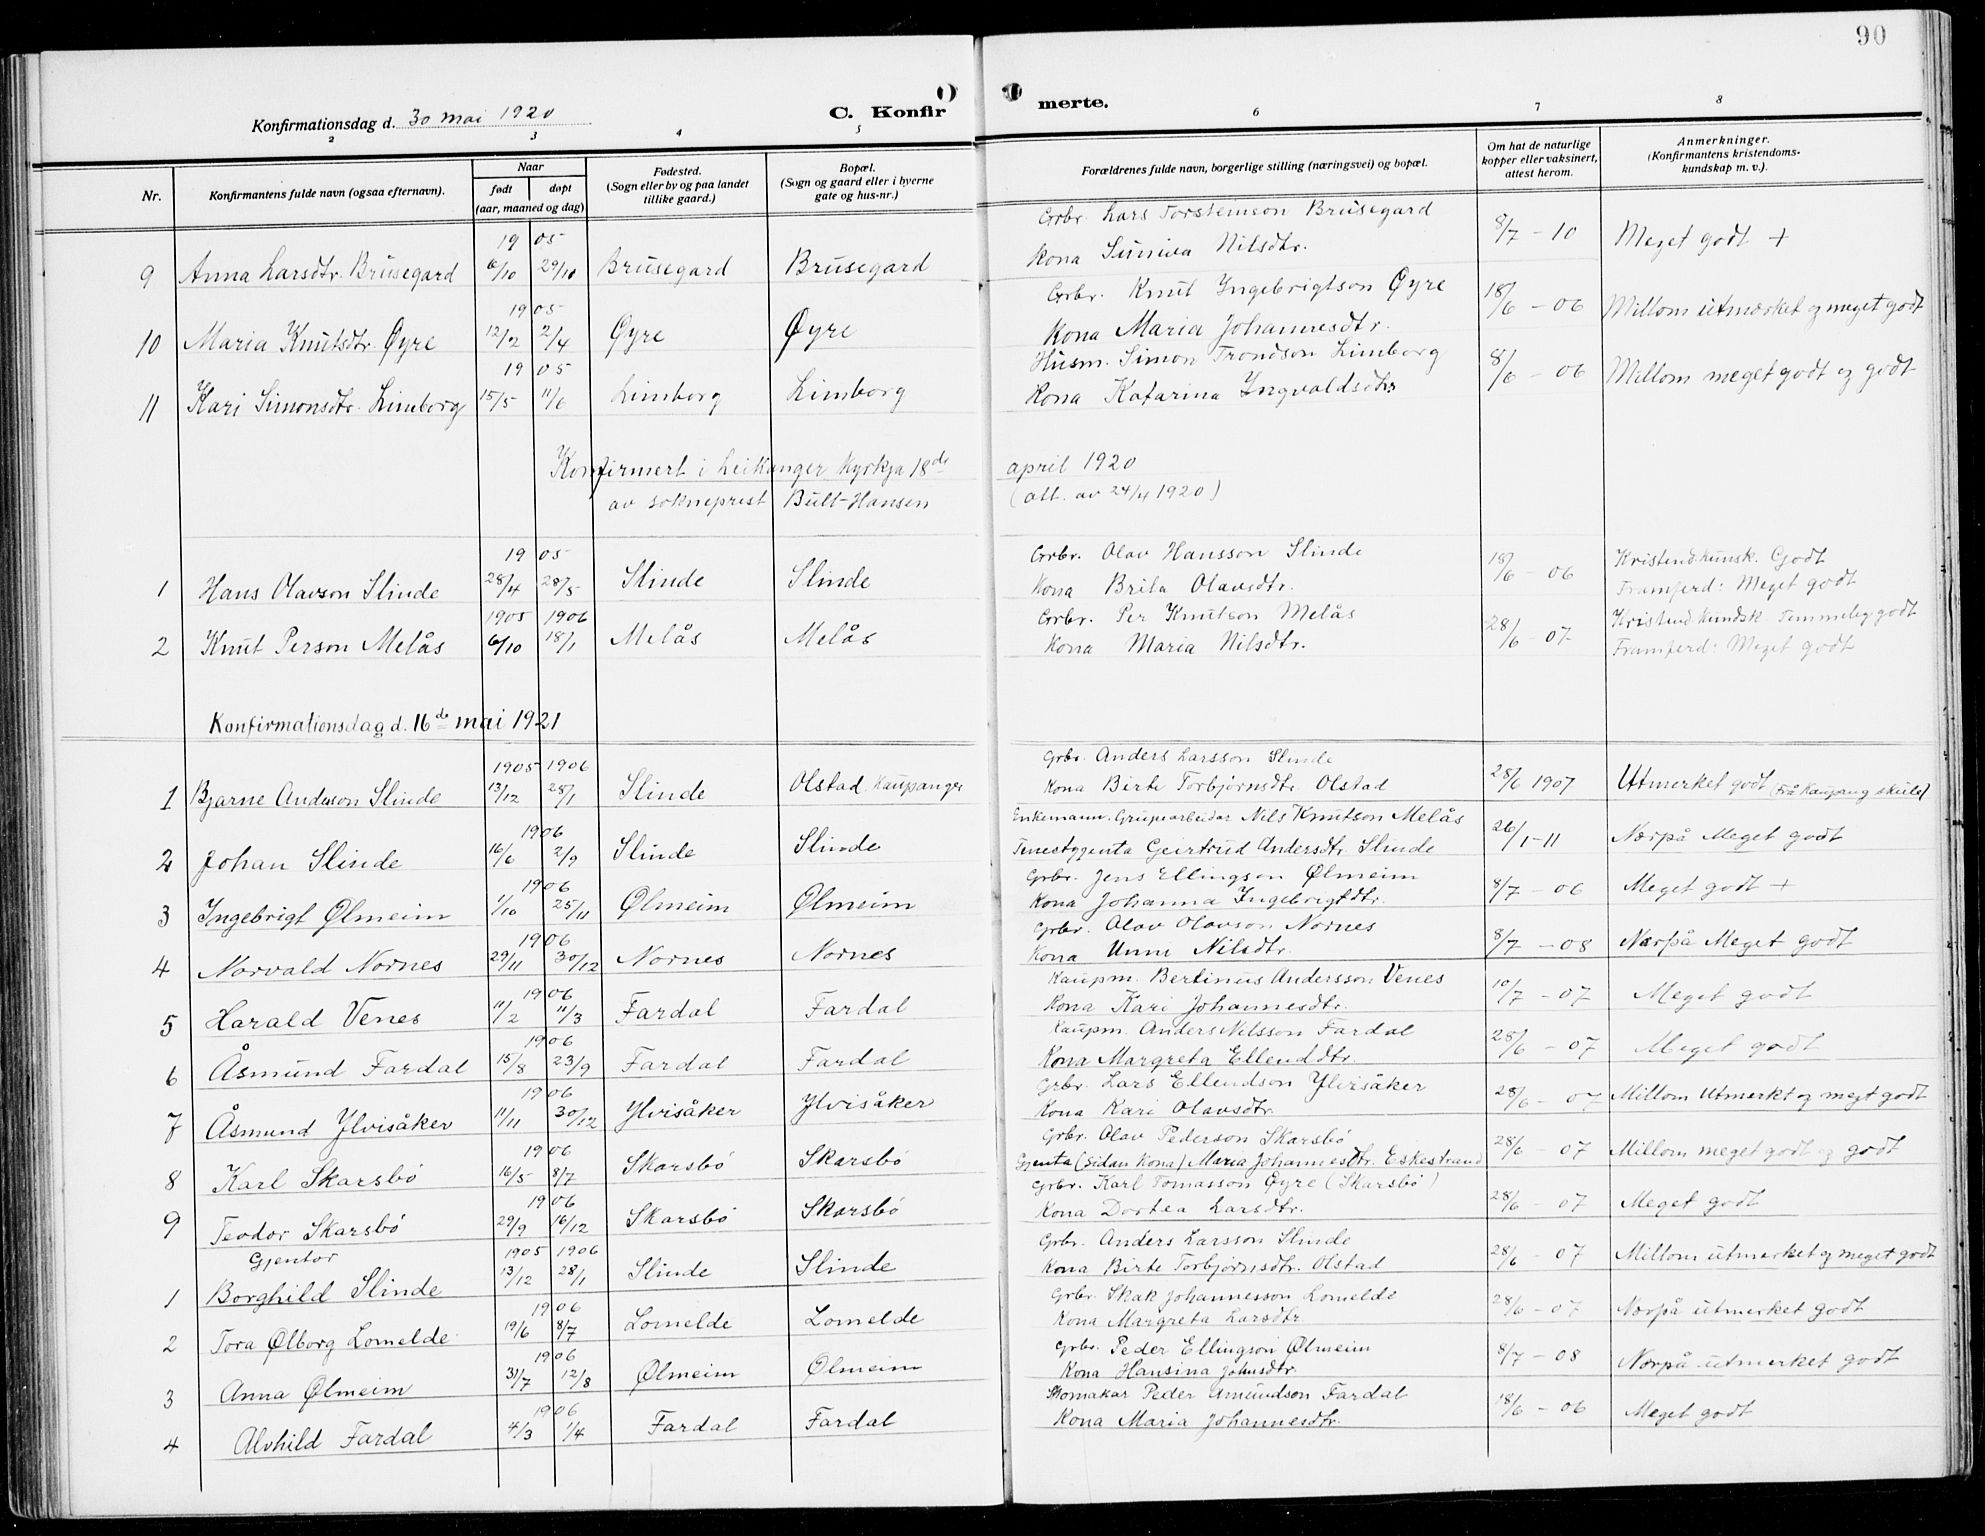 90
Konfirmationsdag d. 30 mai 1920 C. Konfirmerte.
2 3 4 5 6 7 8
Nr. Konfirmantens fulde navn (ogsaa efternavn). Naar født døpt (aar, maaned og dag) Fødested. (Sogn eller by og paa landet tillike gaard.) Bopæl. (Sogn og gaard eller i byerne gate og hus-nr.) Forældrenes fulde navn, borgerlige stilling (næringsvei) og bopæl. Om hat de naturlige kopper eller vaksinert, attest herom. Anmerkninger. (Konfirmantens kristendomskundskap m. v.).
19 05 Grbr. Lars Torsteinson Brusegard
9 Anna Larsdtr. Brusegard 6/10 29/10 Brusegard Brusegard Kona Suniva Nilsdtr. 8/7 - 10 Meget godt +
19 05 Grbr. Knut Ingebrigtson Øyre
10 Maria Knutsdtr. Øyre 12/2 2/4 Øyre Øyre Kona Maria Johannesdtr. 18/6 - 06 Millom utmerket og meget godt
19 05 Husm. Simon Trondson Limborg
11 Kari Simonsdtr. Limborg 15/5 11/6 Limborg Limborg Kona Katarina Ingvaldsdtr 8/6 - 06 Millom meget godt og godt
Konfirmert i Leikanger kyrkja 18de april 1920
av sokneprest Bull-Hansen (att. av 24/4 1920)
19 05 Grbr. Olav Hansson Slinde Kristend.kunsk. Godt
1 Hans Olavson Slinde 28/4 28/5 Slinde Slinde Kona Brita Olavsdtr. 18/6 - 06 Framferd: Meget godt
1905 1906 Grbr. Per Knutson Melås Kristend.kundsk. Temmeleg godt
2 Knut Person Melås 6/10 18/1 Melås Melås Kona Maria Nilsdtr. 28/6 - 07 Framferd: Meget godt
Konfirmationsdag d. 16de mai 1921
1905 1906 Grbr. Anders Larsson Slinde
1 Bjarne Anderson Slinde 13/12 28/1 Slinde Olstad Kaupanger Kona Birte Torbjørnsdtr. Olstad 28/6 1907 Utmerket godt (Frå Kaupang skule)
1906 Enkemann. Gruvearbeidar Nils Knutson Melås
2 Johan Slinde 16/6 2/9 Slinde Slinde Tenestgjenta Geirtrud Andersdtr. Slinde 26/1-11 Nærpå Meget godt
1906 Grbr. Jens Ellingson Ølmeim
3 Ingebrigt Ølmeim 1/10 25/11 Ølmeim Ølmeim Kona Johanna Ingebrigtdtr. 8/7 - 06 Meget godt +
1906 Grbr. Olav Olavson Nornes
4 Norvald Nornes 29/11 30/12 Nornes Nornes Kona Unni Nilsdtr. 8/7 - 08 Nærpå Meget godt
1906 Kaupm. Bertinus Andersson Venes
5 Harald Venes 11/2 11/3 Fardal Fardal Kona Kari Johannesdtr. 10/7 - 07 Meget godt
1906 Kaupm. Anders Nilsson Fardal
6 Åsmund Fardal 15/8 23/9 Fardal Fardal Kona Margreta Ellenddtr. 28/6 - 07 Meget godt
1906 Grbr. Lars Ellendson Ylvisåker
7 Åsmund Ylvisåker 11/11 30/12 Ylvisåker Ylvisåker Kona Kari Olavsdtr. 28/6 - 07 Millom Utmerkt og megt godt
1906 Grbr. Olav Pederson Skarsbø
8 Karl Skarsbø 16/5 8/7 Skarsbø Skarsbø Gjenta (sidan Kona) Maria Johannesdtr. Eskestrand 28/6 - 07 Millom meget godt og godt
1906 Grbr. Karl Tomasson Øyre (Skarsbø)
9 Teodor Skarsbø 29/9 16/12 Skarsbø Skarsbø Kona Dortea Larsdtr. 28/6 - 07 Meget godt
Gjentor 1905 1906 Grbr. Anders Larsson Slinde
1 Borghild Slinde 13/12 28/1 Slinde Slinde Kona Birte Torbjørnsdtr. Olstad 28/6 - 07 Millom utmerket og meget godt
1906 Grbr. Skak Johannesson Lomelde
2 Tora Ølborg Lomelde 19/6 8/7 Lomelde Lomelde Kona Margreta Larsdtr. 28/6 - 07 Nærpå utmerket godt
1906 Grbr. Peder Ellingson Ølmeim
3 Anna Ølmeim 31/7 12/8 Ølmeim Ølmeim Kona Hansina Johnsdtr. 8/7 - 08 Nærpå utmerket godt
1906 Skomakar Peder Amundson Fardal
4 Alvhild Fardal 4/3 1/4 Fardal Fardal Kona Maria Johannesdtr. 18/6 - 06 Meget godt